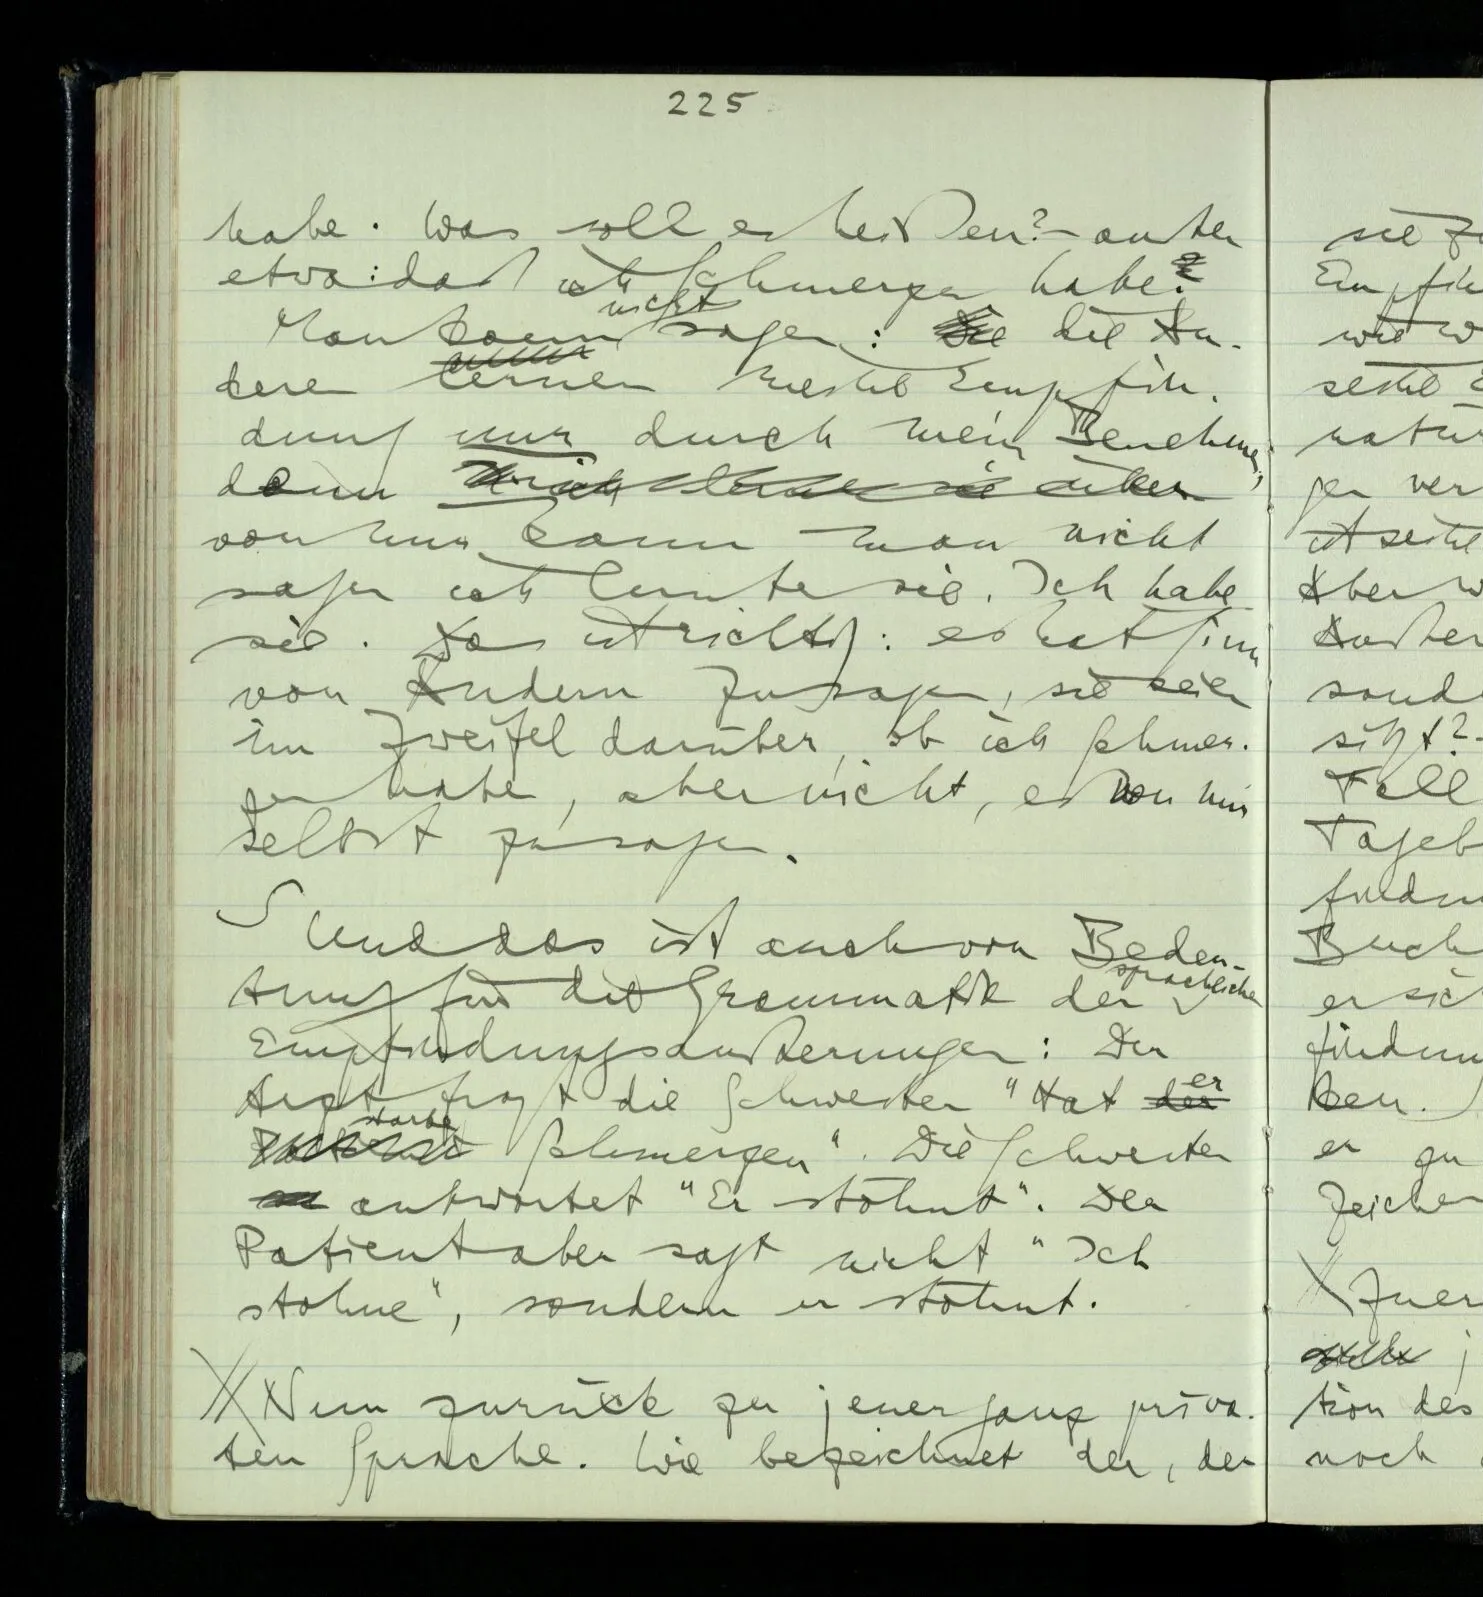 225
habe. Was soll es heißen? – außer
etwa: daß ich Schmerzen habe?
nicht
Man kann sagen: Die die An-
deren lernen meine Empfin-
dung nur durch mein Benehmen,
denn
von mir kann man nicht
sagen ich lernte sie. Ich habe
sie. Das ist richtig: es hat Sinn
von Andern zu sagen, sie seien
im Zweifel darüber, ob ich Schmer-
zen habe, aber nicht, es von mir
selbst zu sagen.
S Und das ist auch von Bedeu-
sprachlichen
tung für die Grammatik der
Empfindungsäußerungen: Der
er
Arzt fragt die Schwester "Hat der
starke
Schmerzen". Die Schwester
antwortet "Er stöhnt". Der
Patient aber sagt nicht "Ich
stöhne", sondern er stöhnt.
Nun zurück zu jener ganz priva-
ten Sprache. Wie bezeichnet der, der
sie
Empfin
wie w
seine
natür
gen ver
ist seine
Aber w
Außer
sond
sitzt?
Fall
Tageb
findun
Buch
er sich
findun
ben.
er zu
Zeichen
\ Zuer
tion des
noch